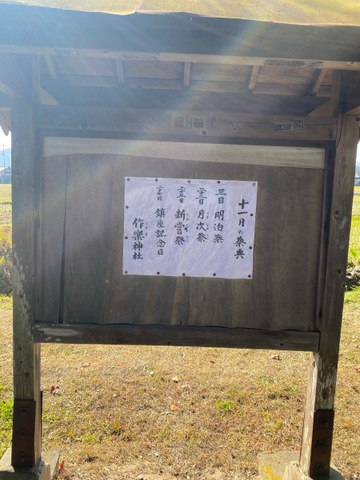 十一月の祭典
三日 明治祭
月次祭
二十三日 新嘗祭
鎮座記念日
作樂神社